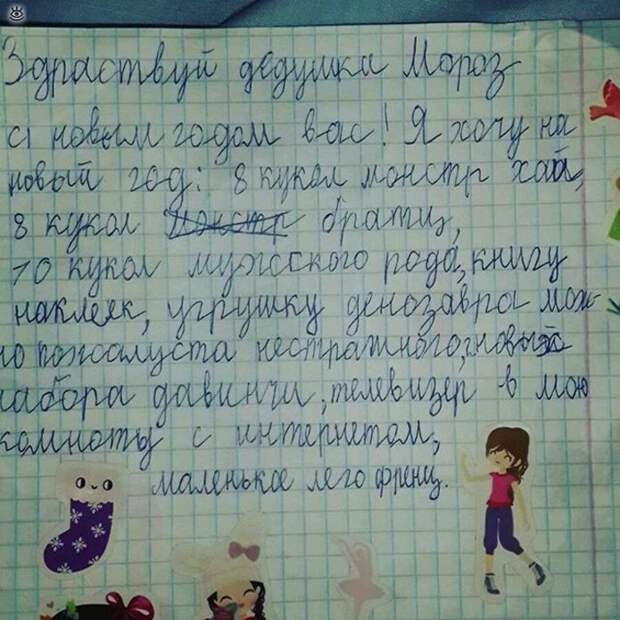 Здраствуй дедушки Мороз
с новым годом вас! Я хочу на
новый год: 8 кукол монстр хай,
8 кукол монстр братц,
10 кукол мужсского рода, книгу
наклеяк, угрушку денозавра мож-
но пожалуста нестрашного, новый
набора давинчи, телевизер в мою
комноты с интернетом,
маленькое лего френц.